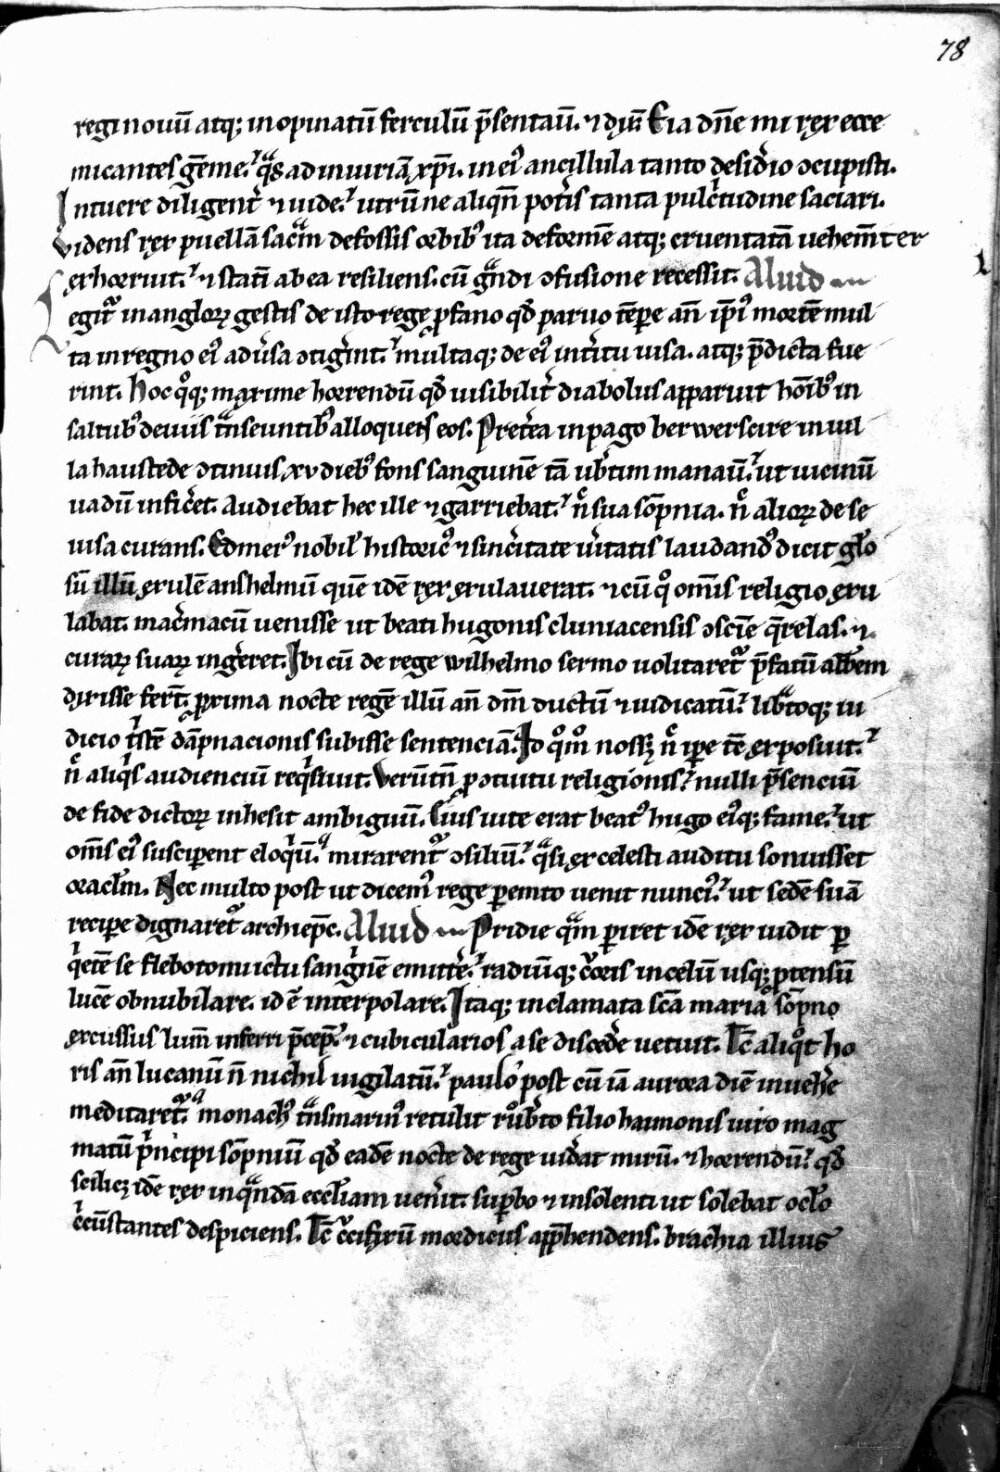 78
regi nouũ atq; inopinatũ ferculũ p̃sentauit̃. ⁊ dix̃: Eia dñe mi rex ecce
micantes gẽme. qͣs ad iniuriã xp̃i. in eiꝰ ancillula tanto desid̾io ɔcupisti.
Intuere diligent̾ ⁊ uide. utrũ ne aliqñ pot̾is tanta pulc̾tudine saciari.
videns rex puellã sacͣm defossis orbibꝰ ita deformẽ atq; cruentatã uehem̃ter
exhorruit. ⁊ statĩ ab ea resiliens. cũ gͣndi ɔfusione recessit. Aliud
Legitᷣ in angloꝝ gestis de isto rege ꝓfano qd̾ paruo tẽpe añ ip̃iꝰ mortẽ mul
ta in regno eiꝰ adũsa ɔtiger̃nt. multaq; de eiꝰ int̾itu uisa. atq; p̃dicta fue
rint. Hoc qͦq; maxime horrendũ qd̾ uisibilit̾ diabolus apparuit hoĩbꝰ in
saltubꝰ deuiis tͣnseuntibꝰ alloquens eos. Pret̾ea in pago berwerscire in uil
la haustede ɔtinuis xv diebꝰ fons sanguinẽ tã ub̾tim manauit̃. ut uicinũ
uadũ infic̾et. Audiebat hec ille ⁊ garriebat. nͨ sua sõpnia. nͨ alioꝝ de se
uisa curans. Edmerꝰ nobil̾ historicꝰ ⁊ sinc̾itate ũitatis laudandꝰ dicit gl̃o
sũ illũ exulẽ anshelmũ quẽ idẽ rex exulauerat. ⁊ cũ qͦ om̃is religio exu
labat. mac̾macũ uenisse ut beati hugonis cluniacensis ɔscĩe q̃relas. ⁊
curaꝝ suaꝝ inger̾et. Ibi cũ de rege wilhelmo sermo uolitaretᷣ p̃fatũ abb̃em
dixisse fert̃. ꝓxima nocte regẽ illũ añ dm̃ ductũ ⁊ iudicatũ. lib̾toq; iu
dicio tͥstẽ dãpnacionis subisse sentenciã. Id qͦmͦ nossꝫ nͨ ipe tc̃ exposuit.
nͨ aliqͥs audienciũ req̾siuit. Verũtñ ꝓ ɔtuitu religionis. nulli p̃senciũ
de fide dictoꝝ inhesit ambiguũ. Eius uite erat beatꝰ hugo eiꝰq; fame. ut
om̃s eiꝰ suscip̾ent eloqͥũ. mirarentᷣ ɔsiliũ. qͣsi ex celesti auditu sonuisset
oracl̾m. Nec multo post ut dicemꝰ rege pemto uenit nunciꝰ. ut sedẽ suã
recipe dignaretᷣ archiep̃c. Aliud Pridie qͣm piret idẽ rex uidit p
qͥetẽ se flebotomi ictu sangͥnẽ emitt̾e. radiũq; cͬoris in celũ usq; ꝓtensũ
lucẽ obnubilare. id ẽ interpolare. Itaq; inclamata sc̃a mariã sõpno
excussus lum̃ inferri p̃cep̃. ⁊ cubicularios a se disced̾e uetuit. Tc̃ aliqͦt ho
ris añ lucanũ ñ nichil uigilatũ. paulo post cũ iã aurora diẽ inueh̾e
meditaret̃. monachꝰ tͣnsmarinꝰ retulit rob̾to filio haimonis uiro mag
natũ p̾ncipi sõpniũ qd̾ eadẽ nocte de rege uid̾at mirũ. ⁊ horrendũ. qd̾
scilicꝫ idẽ rex in qͣndã eccl̾iam uen̾it. supbo ⁊ insolenti ut solebat oc̾lo
c̾cũstantes despiciens. Tc̃ cͨcifixũ mordicus app̾hendens. brachia illius